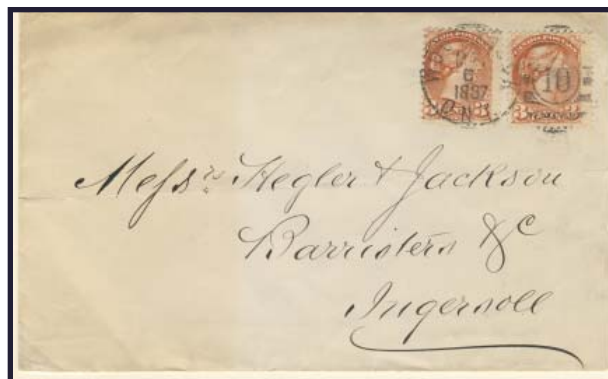 6
1897
ONT
10
3 3
3 3
Messrs. Hegler & Jackson
Barristers &c
Ingersoll